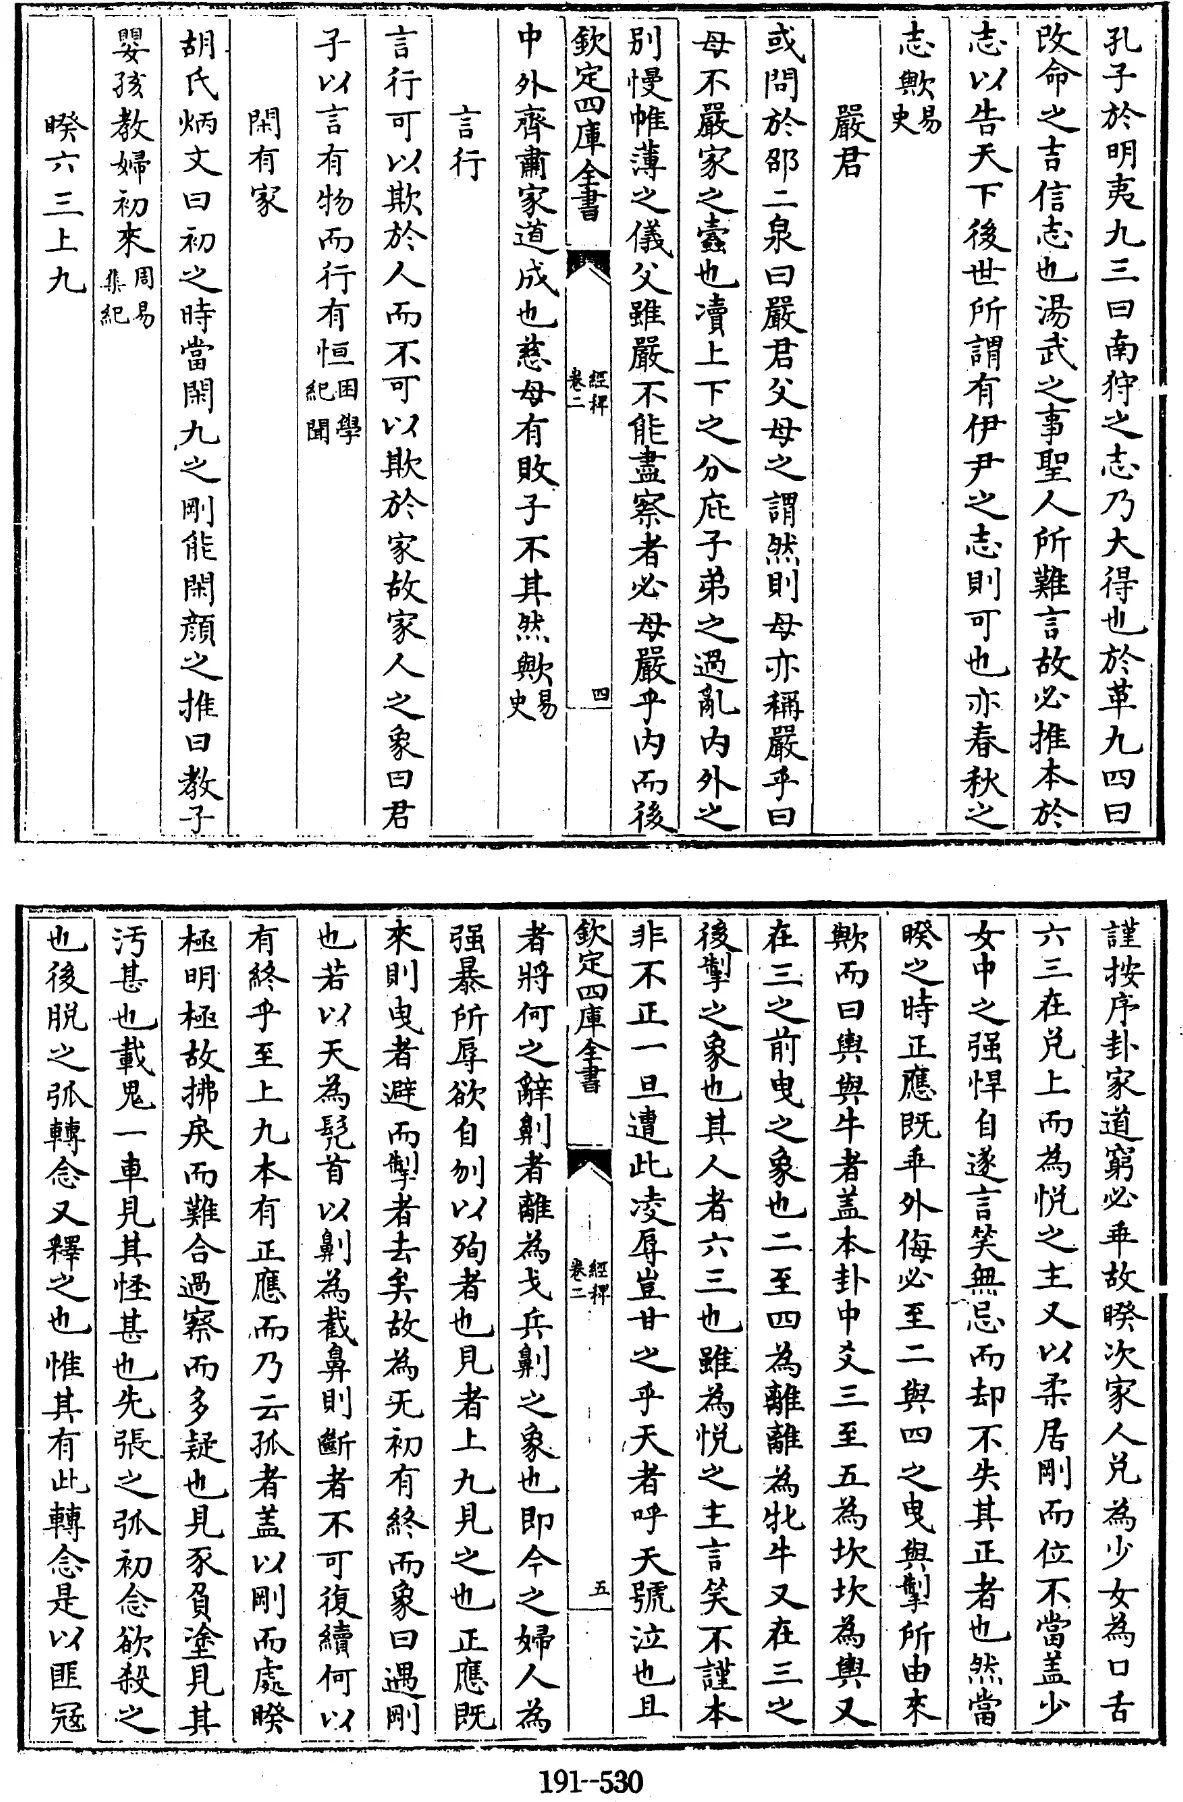 孔子於明夷九三曰南狩之志乃大得也於革九四曰
改命之吉信志也湯武之事聖人所難言故必推本於
志以告天下後世所謂有伊尹之志則可也亦春秋之
志歟易史
嚴君
或問於邵二泉曰嚴君父母之謂然則母亦稱嚴乎曰
母不嚴家之蠧也凟上下之分庇子弟之過亂内外之
別慢帷薄之儀父雖嚴不能盡察者必母嚴乎内而後
欽定四庫全書
經稗
卷二
四
中外齊肅家道成也慈母有敗子不其然歟易史
言行
言行可以欺於人而不可以欺於家故家人之象曰君
子以言有物而行有恒困學紀聞
閑有家
胡氏炳文曰初之時當閑九之剛能閑顔之推曰教子
嬰孩教婦初來周易集紀
睽六三上九
謹按序卦家道窮必乖故睽次家人兑為少女為口舌
六三在兑上而為悦之主又以柔居剛而位不當盖少
女中之强悍自遂言笑無忌而却不失其正者也然當
睽之時正應既乖外侮必至二與四之曳與掣所由來
歟而曰輿與牛者盖本卦中爻三至五為坎坎為輿又
在三之前曳之象也二至四為離離為牝牛又在三之
後掣之象也其人者六三也雖為悦之主言笑不謹本
非不正一旦遭此凌辱豈甘之乎天者呼天號泣也且
欽定四庫全書
經稗
卷二
五
者將何之辭劓者離為戈兵劓之象也即今之婦人為
强暴所辱欲自刎以殉者也見者上九見之也正應既
來則曳者避而掣者去矣故為无初有終而象曰遇剛
也若以天為髠首以劓為截鼻則斷者不可復續何以
有終乎至上九本有正應而乃云孤者盖以剛而處睽
極明極故拂戾而難合過察而多疑也見豕負塗見其
汚甚也載鬼一車見其怪甚也先張之弧初念欲殺之
也後脱之弧轉念又釋之也惟其有此轉念是以匪冦
191--530